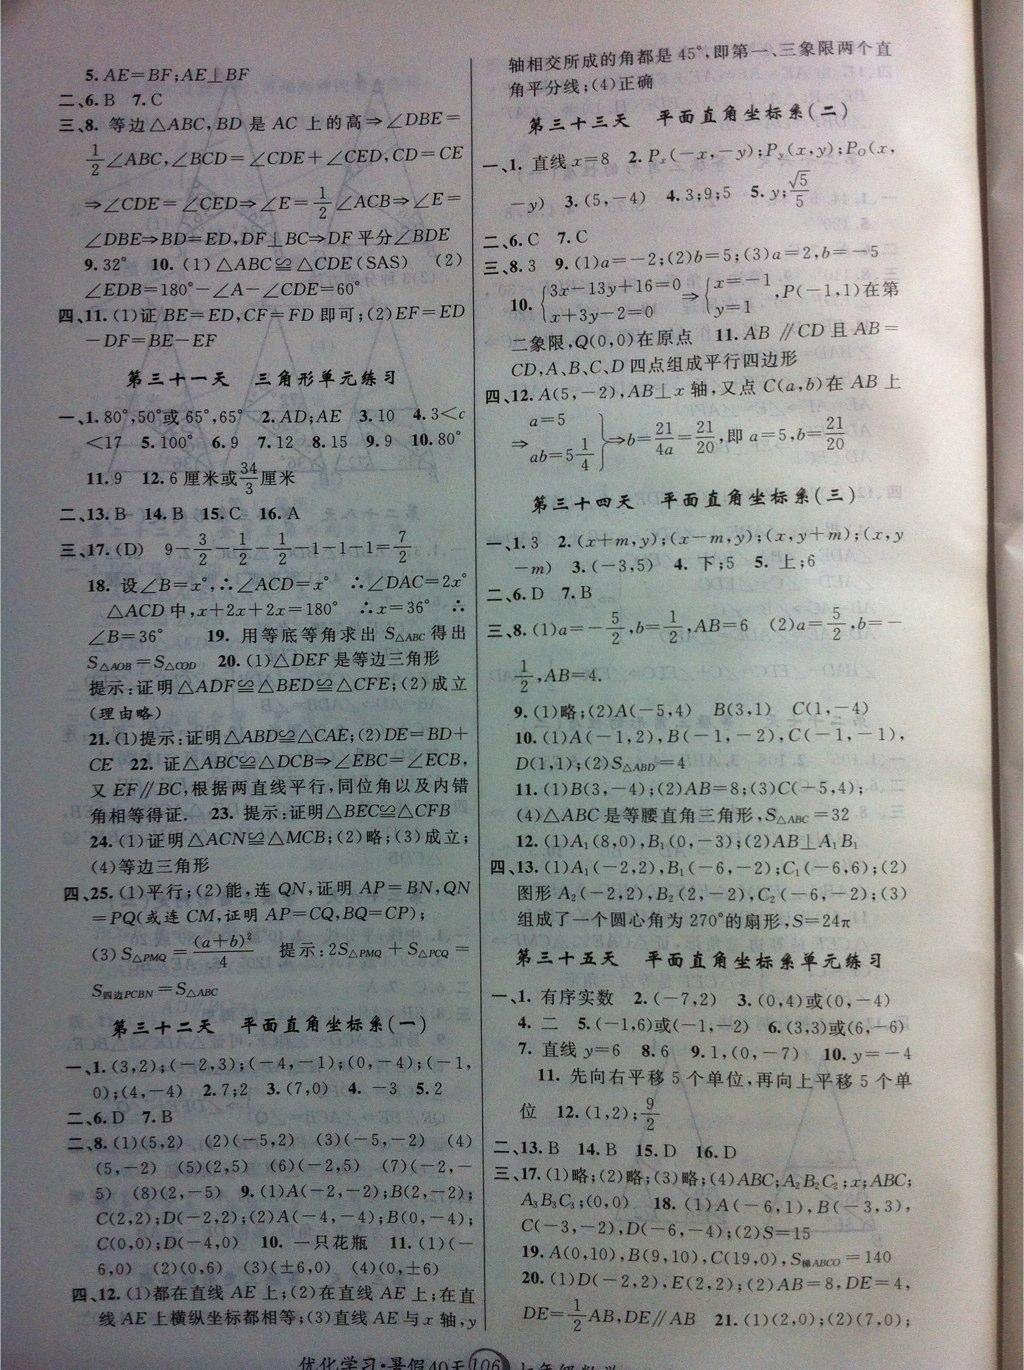 5. AE=BF;AE⊥BF
二、6. B 7. C
三、8. 等边△ABC,BD 是 AC 上的高⇒∠DBE=
1/2∠ABC,∠BCD=∠CDE+∠CED,CD=CE
⇒∠CDE=∠CED⇒∠E=1/2∠ACB⇒∠E=
∠DBE⇒BD=ED,DF⊥BC⇒DF 平分∠BDE
9. 32° 10. (1)△ABC≌△CDE(SAS) (2)
∠EDB=180°-∠A-∠CDE=60°
四、11. (1)证 BE=ED,CF=FD 即可;(2)EF=ED
-DF=BE-EF
第三十一天 三角形单元练习
一、1. 80°,50°或 65°,65° 2. AD;AE 3. 10 4. 3<c
<17 5. 100° 6. 9 7. 12 8. 15 9. 9 10. 80°
11. 9 12. 6 厘米或34/3厘米
二、13. B 14. B 15. C 16. A
三、17. (D) 9-3/2-1/2-1/2-1-1-1=7/2
18. 设∠B=x°,∴∠ACD=x° ∴∠DAC=2x°
△ACD 中,x+2x+2x=180° ∴x=36° ∴
∠B=36° 19. 用等底等角求出 S△ABC得出
S△AOB=S△COD 20. (1)△DEF 是等边三角形
提示:证明△ADF≌△BED≌△CFE;(2)成立
(理由略)
21. (1)提示:证明△ABD≌△CAE;(2)DE=BD+
CE 22. 证△ABC≌△DCB⇒∠EBC=∠ECB,
又 EF∥BC,根据两直线平行,同位角以及内错
角相等得证. 23. 提示:证明△BEC≌△CFB
24. (1)证明△ACN≌△MCB;(2)略;(3)成立;
(4)等边三角形
四、25. (1)平行;(2)能,连 QN,证明 AP=BN,QN
=PQ(或连 CM,证明 AP=CQ,BQ=CP);
(3)S△PMQ=(a+b)²/4 提示:2S△PMQ+S△PCQ=
S四边PCBN=S△ABC
第三十二天 平面直角坐标系(一)
一、1. (3,2);(-2,3);(-4,-1);(0,-4);(-1,
0);(4,-4) 2. 7;2 3. (7,0) 4. -3 5. 2
二、6. D 7. B
二、8. (1)(5,2) (2)(-5,2) (3)(-5,-2) (4)
(5,-2) (5)(2,5) (6)(-2,5) (7)(-2,-
5) (8)(2,-5) 9. (1)A(-2,-2);B(2,-2);
C(2,2);D(-2,2);(2)A(-4,-4);B(0,-4);
C(0,0);D(-4,0) 10. 一只花瓶 11. (1)(-
6,0) (2)(0,6) (3)(±6,0) (4)(0,±6)
四、12. (1)都在直线 AE 上;(2)在直线 AE 上;在直
线 AE 上横纵坐标都相等;(3)直线 AE 与 x 轴,y
轴相交所成的角都是 45°,即第一、三象限两个直
角平分线;(4)正确
第三十三天 平面直角坐标系(二)
一、1. 直线 x=8 2. Px(-x,-y);Py(x,y);PO(x,
-y) 3. (5,-4) 4. 3;9;5 5. y;√5/5
二、6. C 7. C
三、8. 3 9. (1)a=-2;(2)b=5;(3)a=2,b=-5
10. {3x-13y+16=0 x+3y-2=0 ⇒{x=-1 y=1 ,P(-1,1)在第
二象限,Q(0,0)在原点 11. AB∥CD 且 AB=
CD,A、B、C、D 四点组成平行四边形
四、12. A(5,-2),AB⊥x 轴,又点 C(a,b)在 AB 上
⇒ a=5 ab=5 1/4 }⇒b=21/4a=21/20,即 a=5,b=21/20
第三十四天 平面直角坐标系(三)
一、1. 3 2. (x+m,y);(x-m,y);(x,y+m);(x,y
-m) 3. (-3,5) 4. 下;5 5. 上;6
二、6. D 7. B
三、8. (1)a=-5/2,b=1/2,AB=6 (2)a=5/2,b=-
1/2,AB=4.
9. (1)略;(2)A(-5,4) B(3,1) C(1,-4)
10. (1)A(-1,2),B(-1,-2),C(-1,-1),
D(1,1);(2)S△ABD=4
11. (1)B(3,-4);(2)AB=8;(3)C(-5,4);
(4)△ABC 是等腰直角三角形,S△ABC=32
12. (1)A1(8,0),B1(0,-3);(2)AB⊥A1B1
四、13. (1)A1(-2,2),B1(-6,-2);C1(-6,6);(2)
图形 A2(-2,2),B2(2,-2),C2(-6,-2);(3)
组成了一个圆心角为 270°的扇形,S=24π
第三十五天 平面直角坐标系单元练习
一、1. 有序实数 2. (-7,2) 3. (0,4)或(0,-4)
4. 二 5. (-1,6)或(-1,-2) 6. (3,3)或(6,-6)
7. 直线 y=6 8. 6 9. 1,(0,-7) 10. y=-4
11. 先向右平移 5 个单位,再向上平移 5 个单
位 12. (1,2);9/2
二、13. B 14. B 15. D 16. D
三、17. (1)略;(2)略;(3)略;(4)ABC;A2B2C2;x;ABC;
A3B3C3;(0,0) 18. (1)A(-6,1),B(-3,3),
C(-3,-2),D(-6,-4);(2)S=15
19. A(0,10),B(9,10),C(19,0),S梯ABCO=140
20. (1)D(-2,2),E(2,2);(2)AB=8,DE=4,
DE=1/2AB,DE∥AB 21. (1)(2,0);(2)(7,0);
优化学习·暑假40天 106 七年级数学